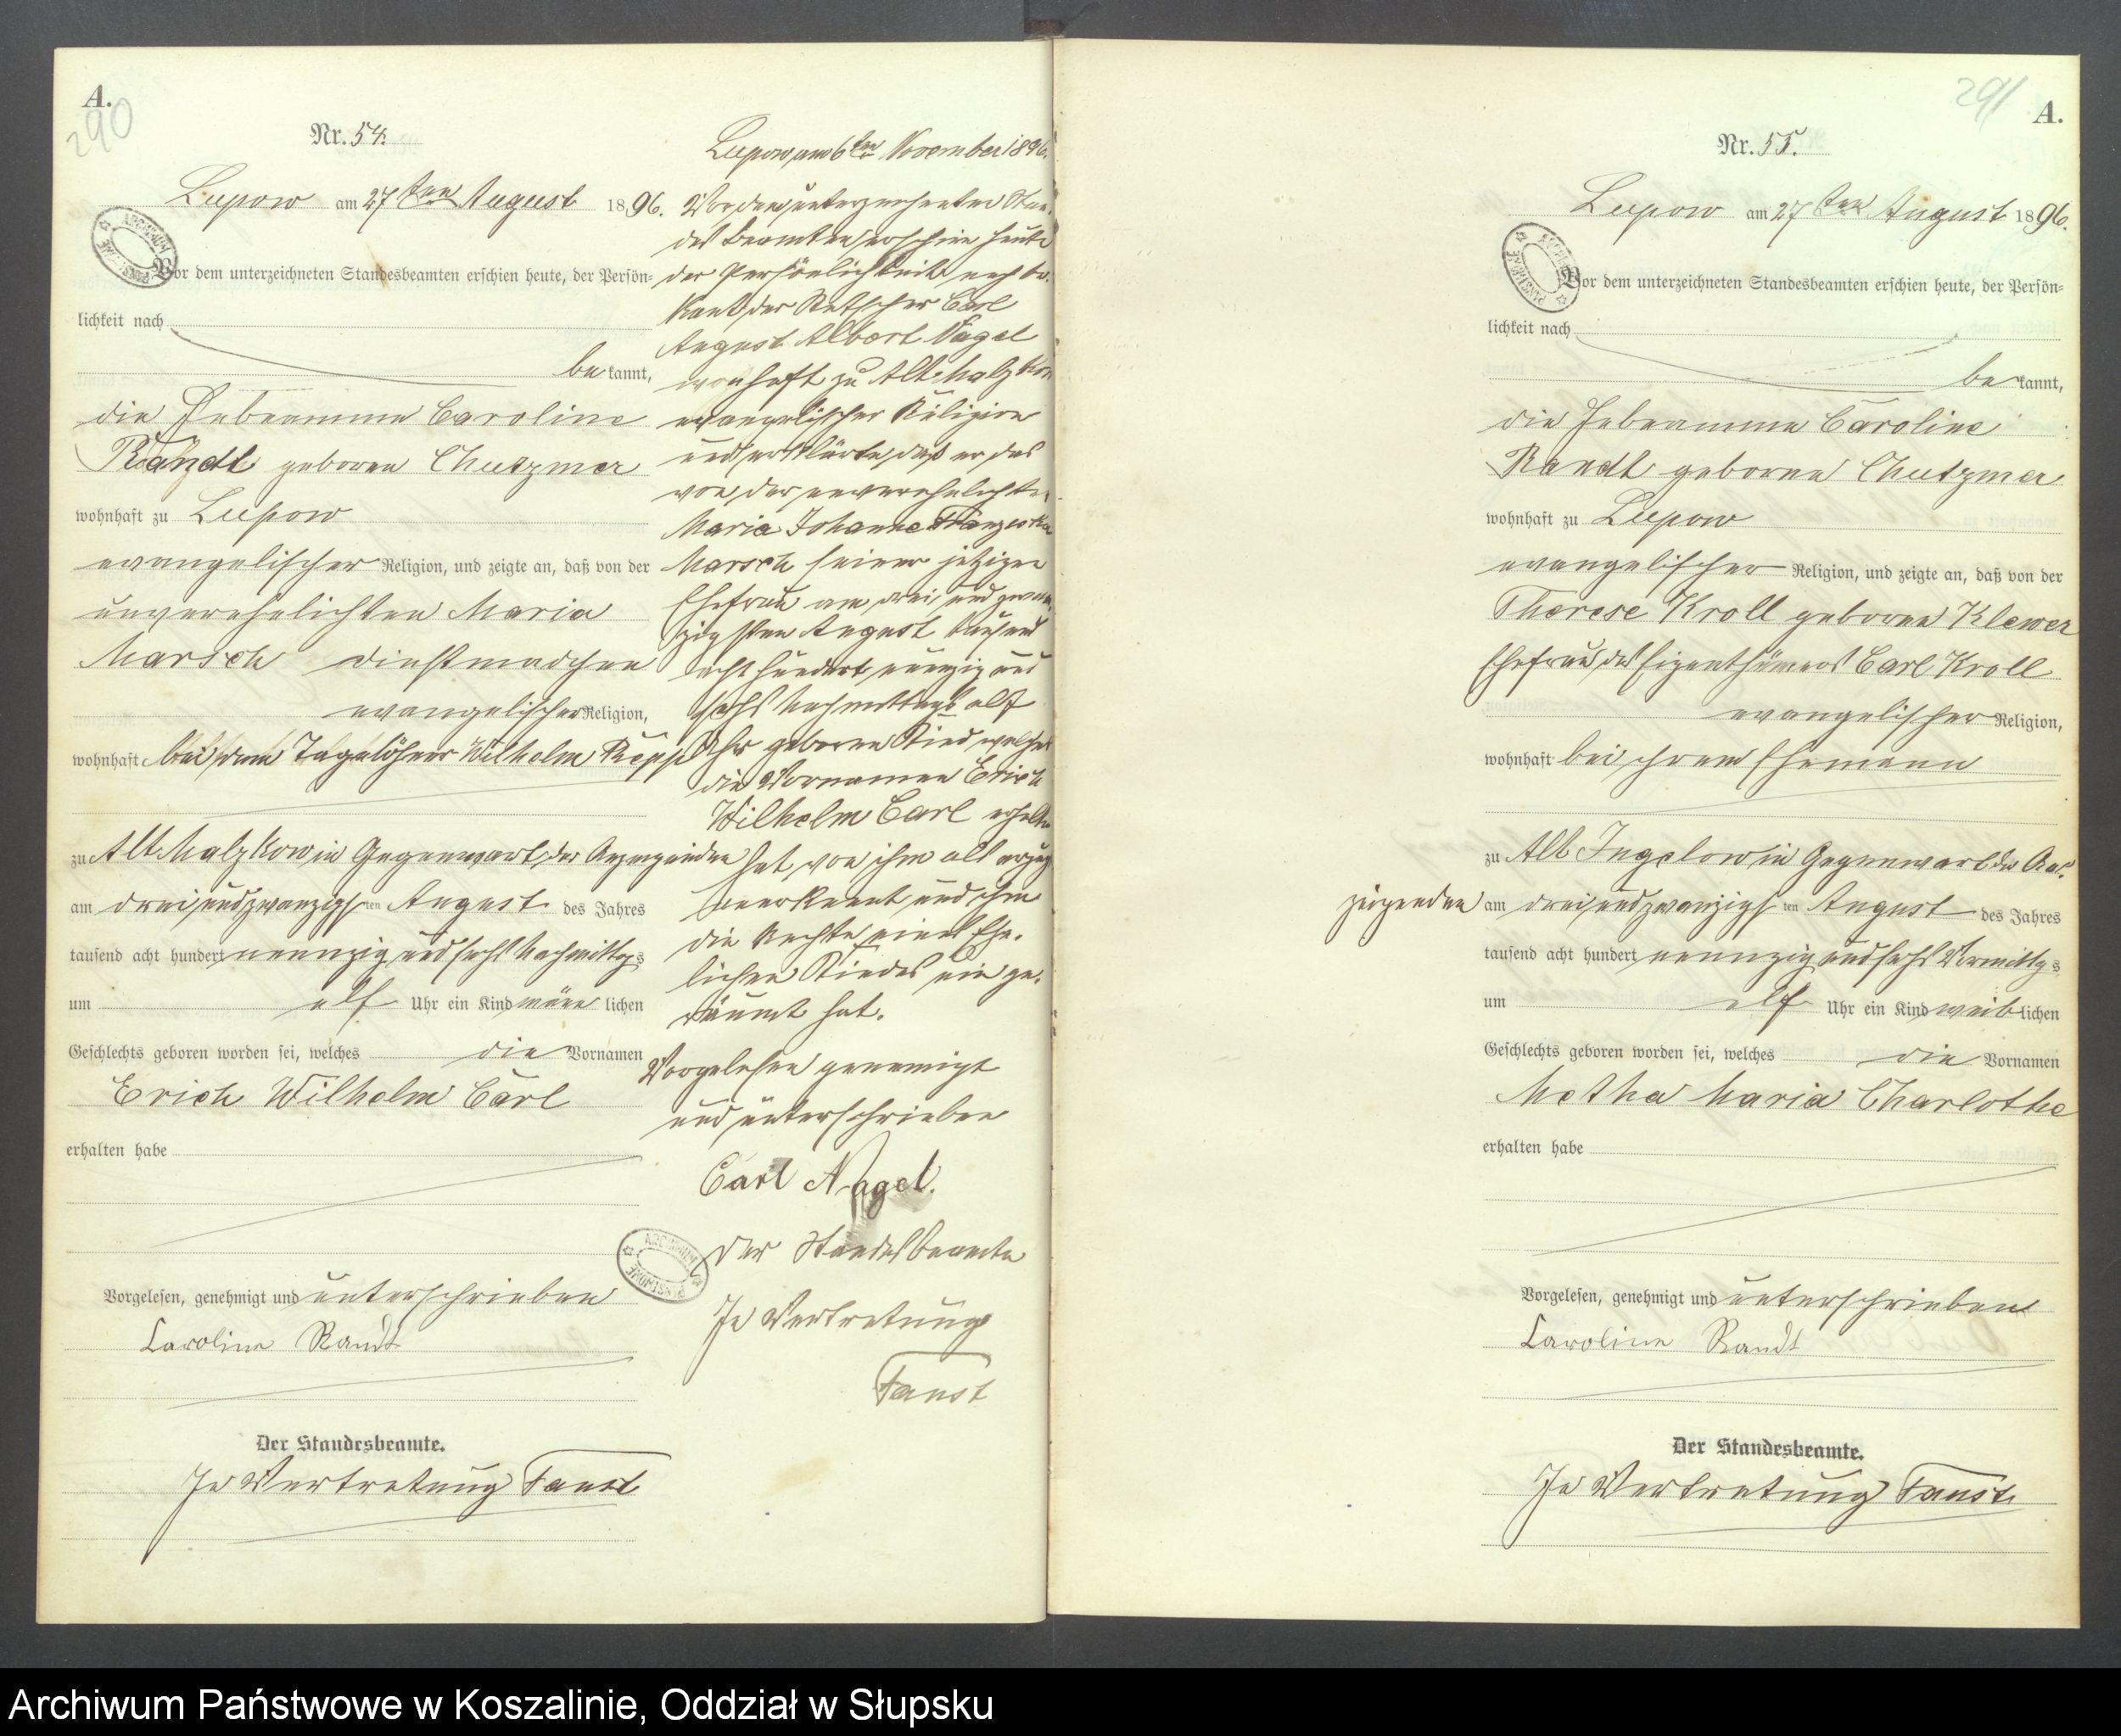 A.
290
Nr. 54.
Lupow am 27ten August 1896.
Vor dem unterzeichneten Standesbeamten erschien heute, der Persön-
lichkeit nach
bekannt,
die Hebeamme Caroline
Randt geborne Chutzmer
wohnhaft zu Lupow
evangelischer Religion, und zeigte an, daß von der
unverehelichten Maria
Marsch dinstmadchen
evangelischer Religion,
wohnhaft bei dem Tagelöhner Wilhelm Repp
zu Alt Malzkow in Gegenwart der Anzeigenden
am drei und zwanzigsten August des Jahres
tausend acht hundert neunzig und sechs Nachmittags
um elf Uhr ein Kind mänlichen
Geschlechts geboren worden sei, welches die Vornamen
Erich Wilhelm Carl
erhalten habe
Vorgelesen, genehmigt und unterschrieben
Caroline Randt
Der Standesbeamte.
In Vertretung Faust
Lupow am 6ten November 1896.
Vor dem unterzeichneten Stan-
des Beamten erschien heute
der Persönlichkeit nach be-
kant der Carl
August Albert Nagel
wonhaft zu Alt Malzkow
evangelischer Religion
und erklärte, daß er das
von der unverehelichten
Maria Johanne Franzeska
Marsch seiner jetzigen
Ehefrau am drei und zwan
zigsten August tausend
acht hundert neunzig und
sechs Nachmittags elf
Uhr geborene Kind welches
die Vornamen Erich
Wilhelm Carl erhalten
hat, von ihm als erzeugt
anerkannt und ihm
die Rechte eines Ehe-
lichen Kindes ein ge-
räumt hat.
Vorgelesen genemigt
und unterschrieben
Carl Nagel.
Der Standesbeamte
In Vertretung
Faust
ARCHIWUM PAŃSTWOWE
291
A.
Nr. 55.
Lupow am 27ten August 1896.
Vor dem unterzeichneten Standesbeamten erschien heute, der Persön-
lichkeit nach
bekannt,
die Hebeamme Caroline
Randt geborne Chutzmer
wohnhaft zu Lupow
evangelischer Religion, und zeigte an, daß von der
Therese Kroll geborne Klewer
Ehefrau des Eigenthümers Carl Kroll
evangelischer Religion,
wohnhaft bei ihrem Ehemann
zu Alt Jugelow in Gegenwart der An-
zeigenden am drei und zwanzigsten August des Jahres
tausend acht hundert neunzig und sechs Vormittags
um elf Uhr ein Kind weiblichen
Geschlechts geboren worden sei, welches die Vornamen
Metha Maria Charlotte
erhalten habe
Vorgelesen, genehmigt und unterschrieben
Caroline Randt
Der Standesbeamte.
In Vertretung Faust
Archiwum Państwowe w Koszalinie, Oddział w Słupsku